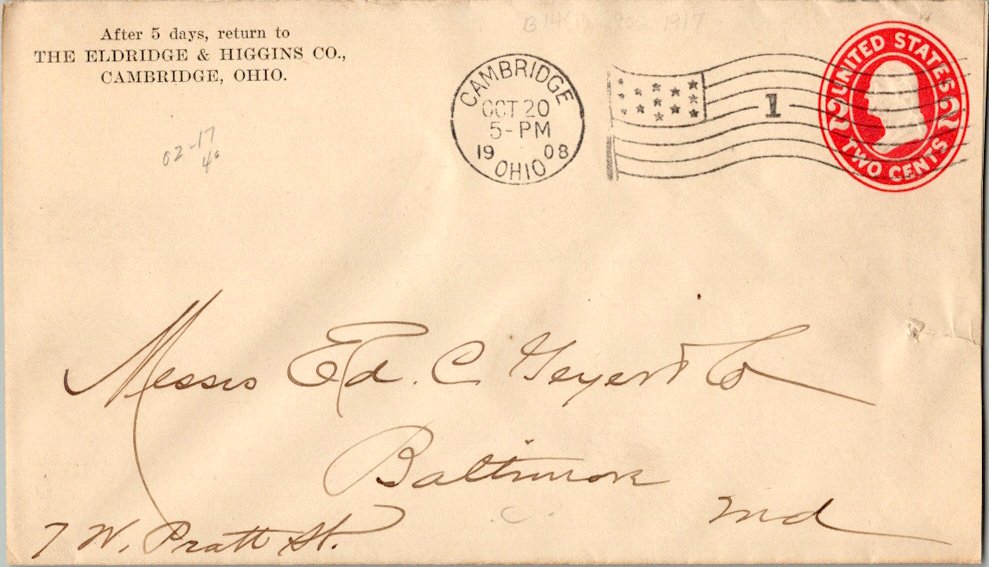 After 5 days, return to
THE ELDRIDGE & HIGGINS CO.,
CAMBRIDGE, OHIO.
02-17
CAMBRIDGE
OCT 20
5-PM
19 08
OHIO
1
UNITED STATES
2 2
TWO CENTS
1917
Messrs Ed. C. Geyer & Co
Baltimore
Md
7 W. Pratt St.